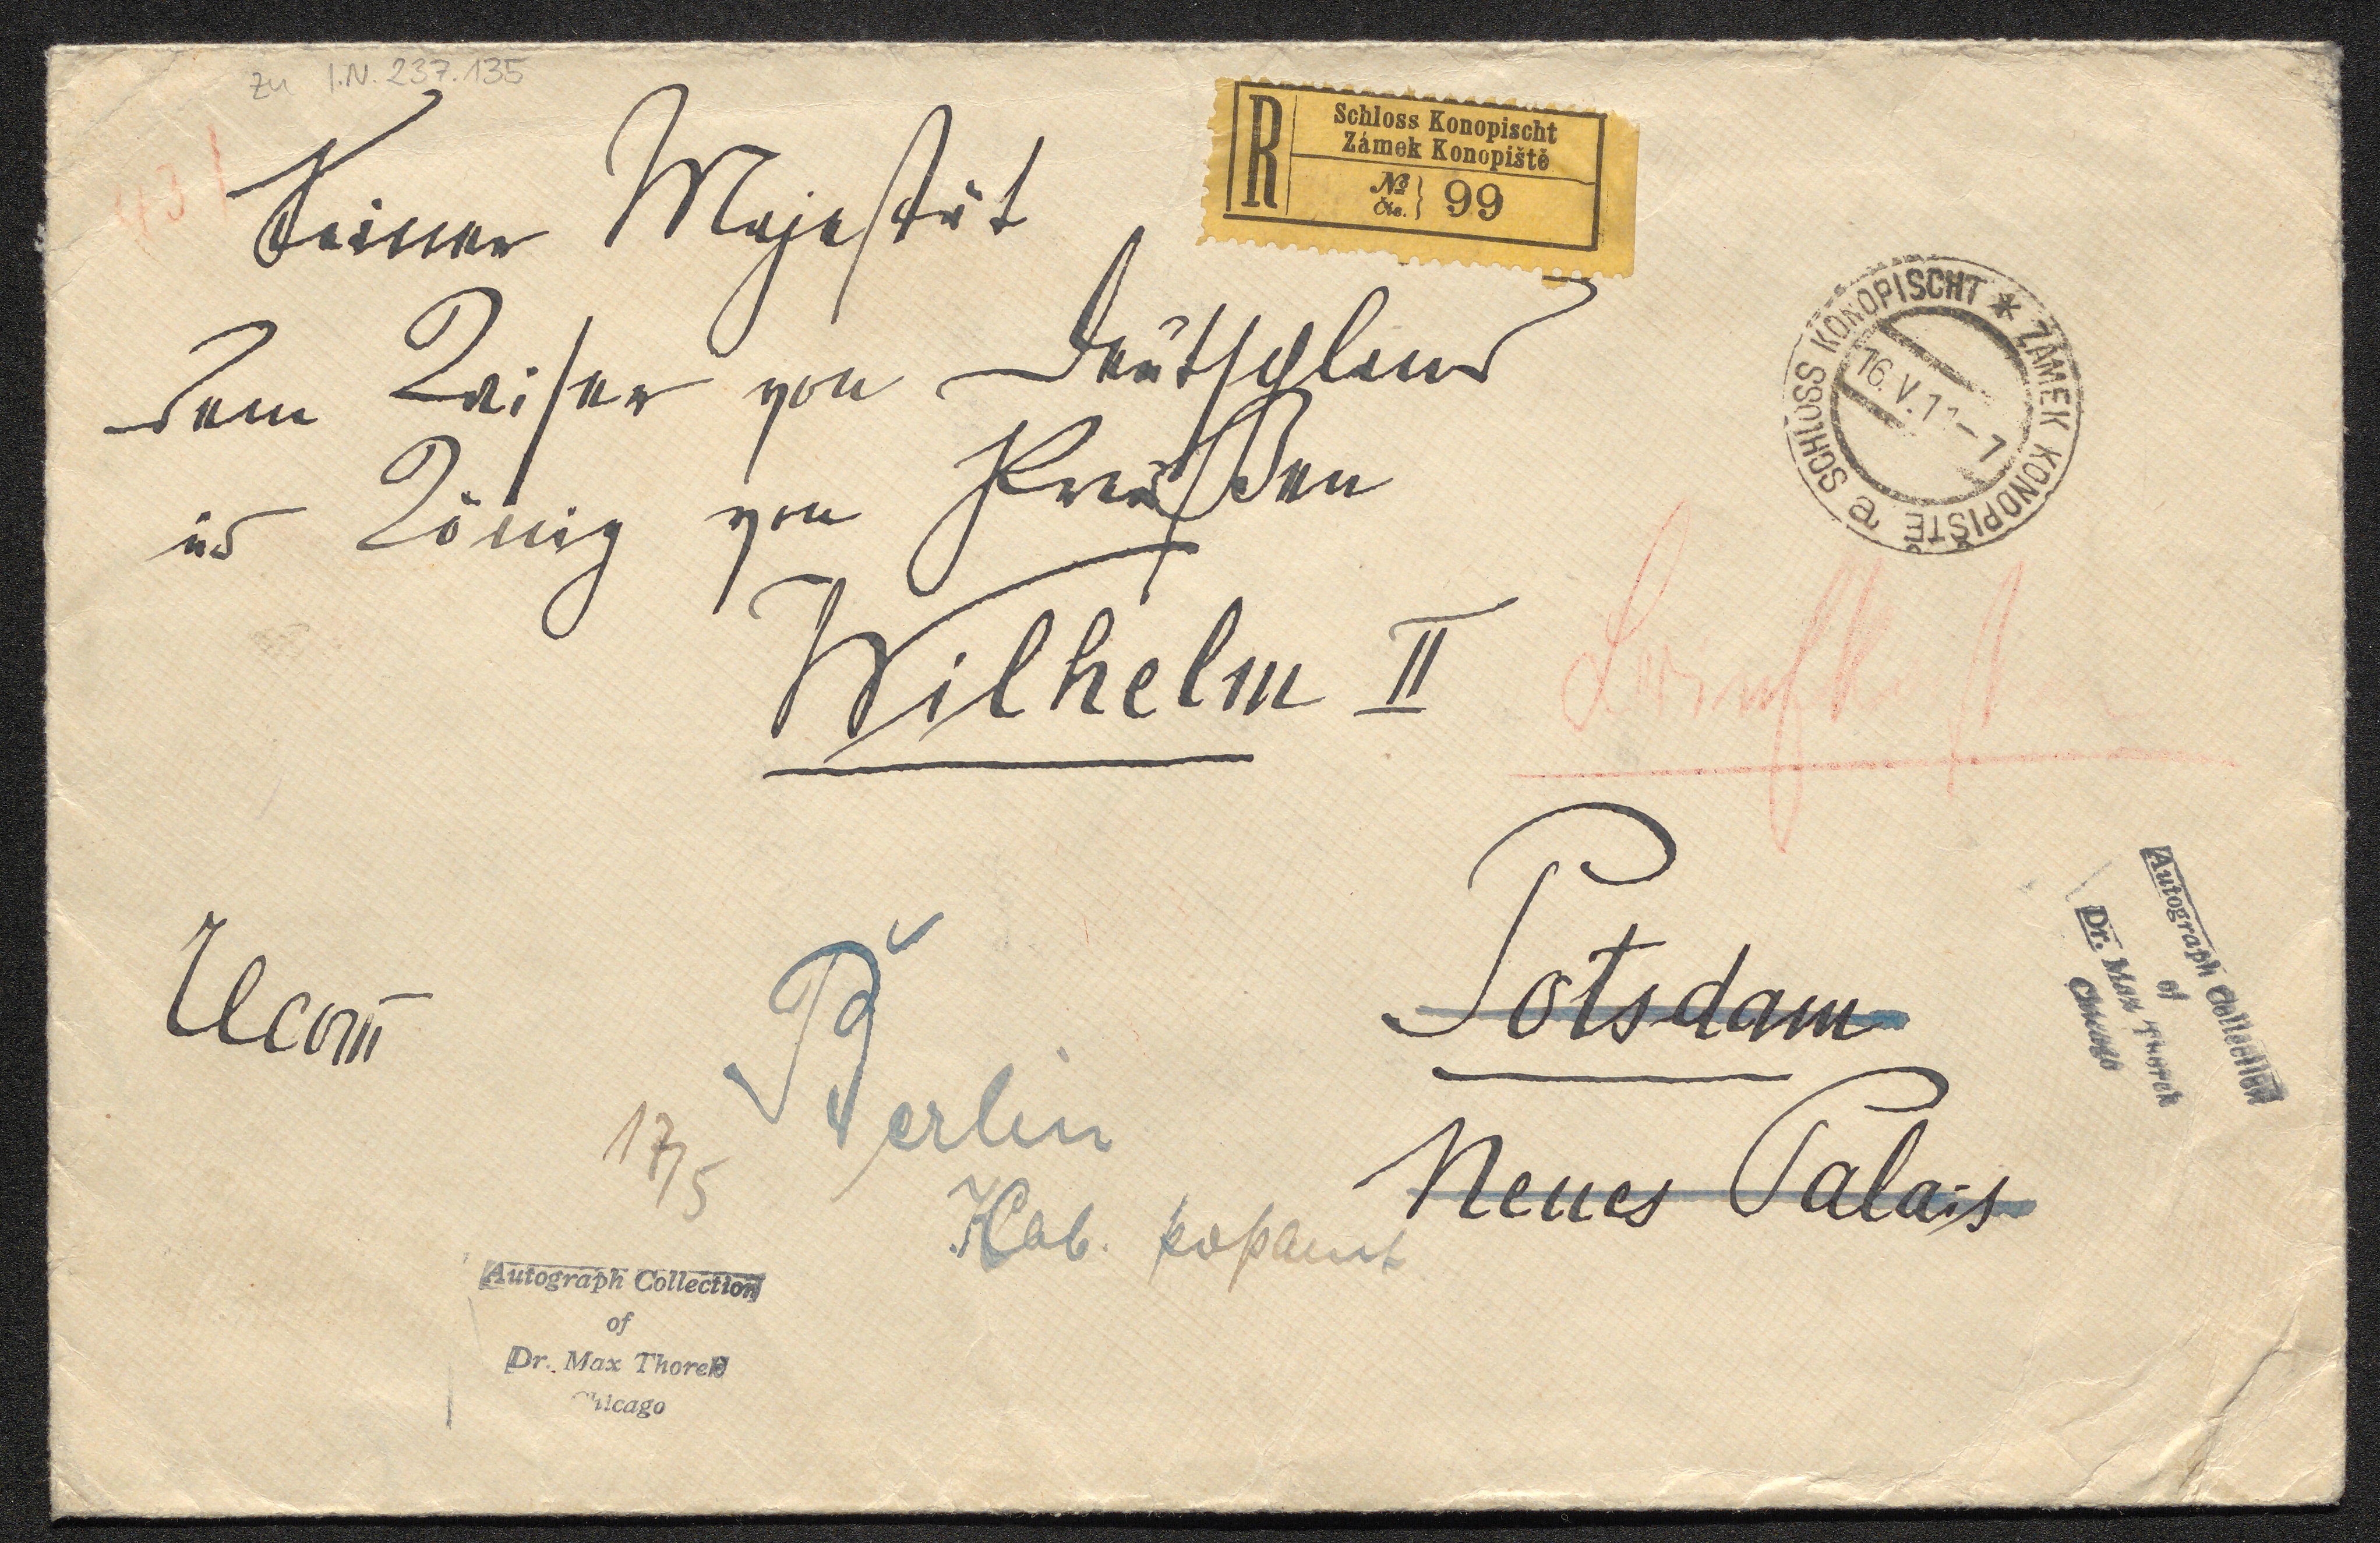 zu I.N. 237.135
Seiner Majestät
R
Schloss Konopischt
Zámek Konopiště
No
Čis. } 99
dem Kaiser von Deutschland
SCHLOSS KONOPISCHT * ZÁMEK KONOPIŠTĚ e
16.V.11-7
u König von Preußen
Wilhelm II
Potsdam
Neues Palais
Recom
Berlin
17/5
Kab. postamt
Autograph Collection
of
Dr. Max Thorek
Chicago
Autograph Collection
of
Dr. Max Thorek
Chicago